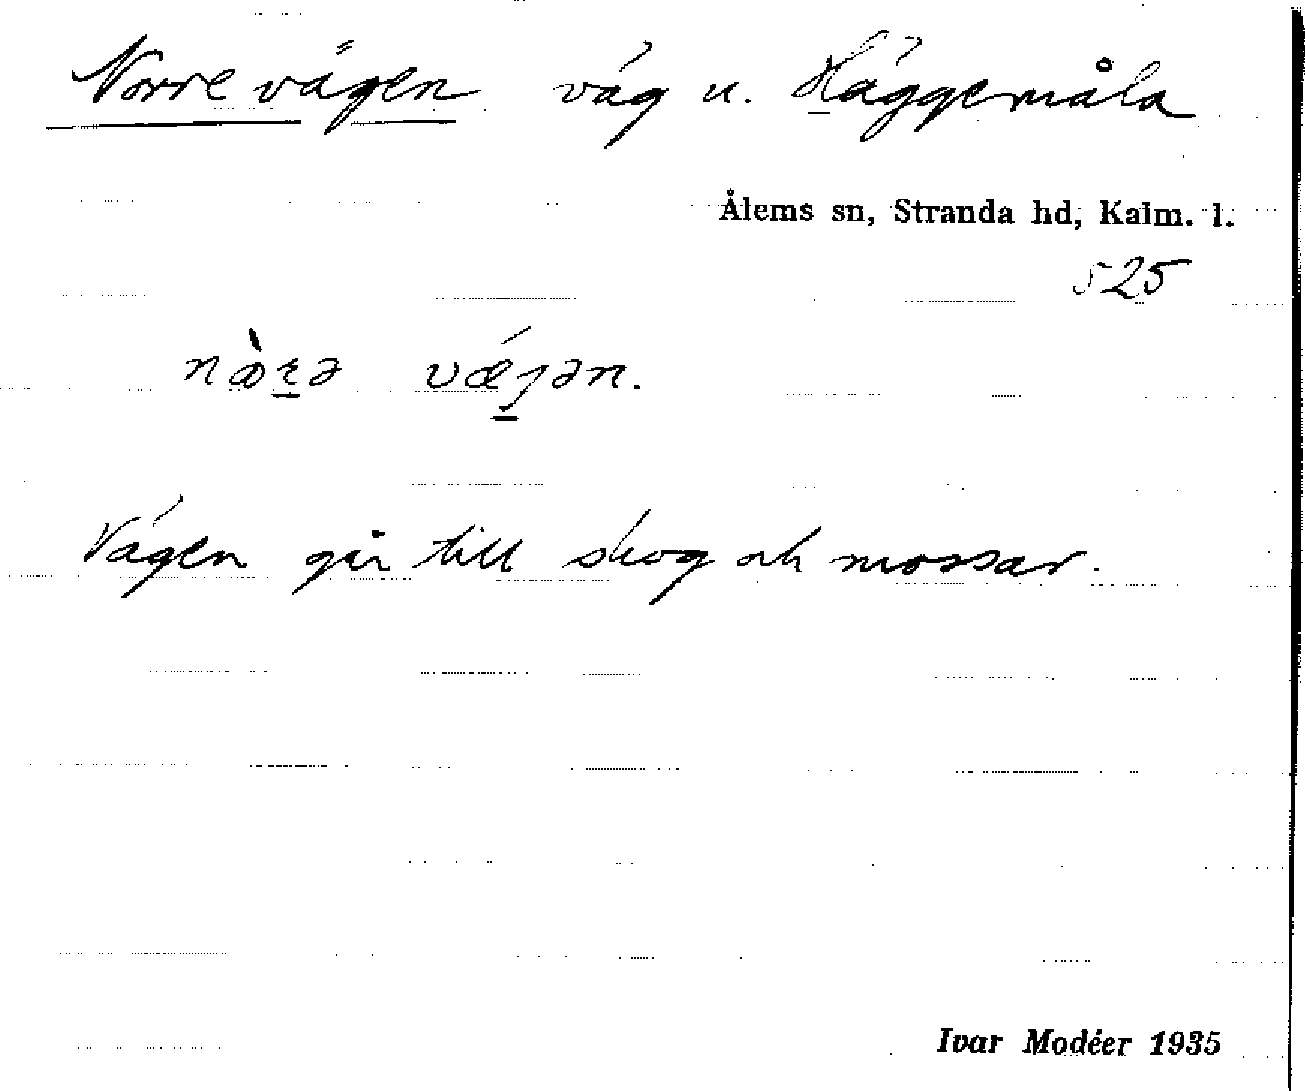 Norre vägen väg u. Häggemåla
Ålems sn, Stranda hd, Kalm. l.
525
nòrə vǽjən.
Vägen går till skog och mossar.
Ivar Modéer 1935